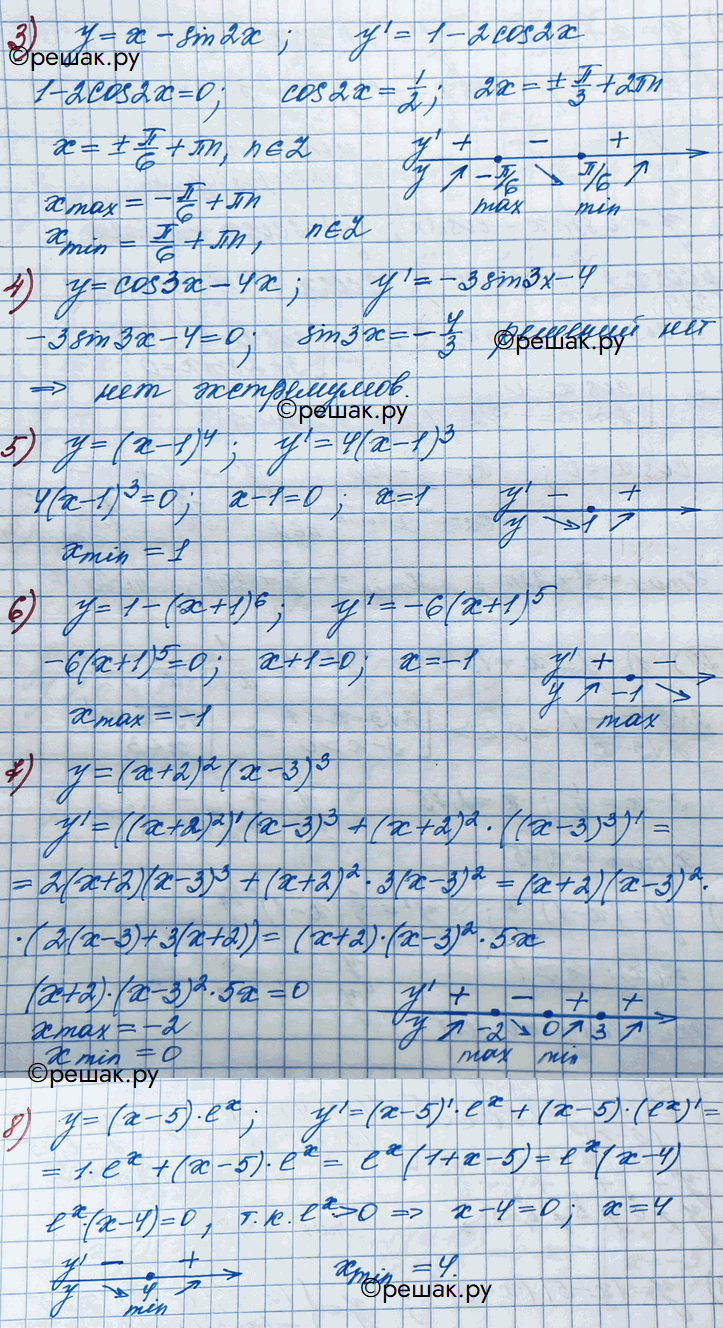 3) y = x − sin2x ; y' = 1 − 2cos2x
©решак.ру
1−2cos2x=0; cos2x = 1/2; 2x = ± π/3 + 2πn
x = ± π/6 + πn, n∈Z
y' + − +
y ↗ −π/6 ↘ π/6 ↗
max min
xmax = −π/6 + πn
xmin = π/6 + πn, n∈Z
4) y = cos3x − 4x ; y' = −3sin3x−4
−3sin3x−4=0; sin3x = −4/3 решений нет
©решак.ру
⇒ нет экстремумов.
©решак.ру
5) y = (x−1)⁴ ; y' = 4(x−1)³
4(x−1)³=0; x−1=0 ; x=1
y' − +
y ↘ 1 ↗
xmin = 1
6) y = 1−(x+1)⁶; y' = −6(x+1)⁵
−6(x+1)⁵=0; x+1=0; x=−1
y' + −
y ↗ −1 ↘
max
xmax = −1
7) y = (x+2)² (x−3)³
y' = ((x+2)²)' (x−3)³ + (x+2)² · ((x−3)³)' =
= 2(x+2)(x−3)³ + (x+2)² · 3(x−3)² = (x+2)(x−3)² ·
· (2(x−3)+3(x+2)) = (x+2)·(x−3)² · 5x
(x+2)·(x−3)² · 5x = 0
y' + − + +
y ↗ −2 ↘ 0 ↗ 3 ↗
max min
xmax = −2
xmin = 0
©решак.ру
8) y = (x−5)·eˣ; y' = (x−5)'·eˣ + (x−5)·(eˣ)' =
= 1·eˣ + (x−5)·eˣ = eˣ(1+x−5) = eˣ(x−4)
eˣ·(x−4)=0, т.к. eˣ>0 ⇒ x−4=0; x=4
y' − +
y ↘ 4 ↗
min
xmin = 4.
©решак.ру